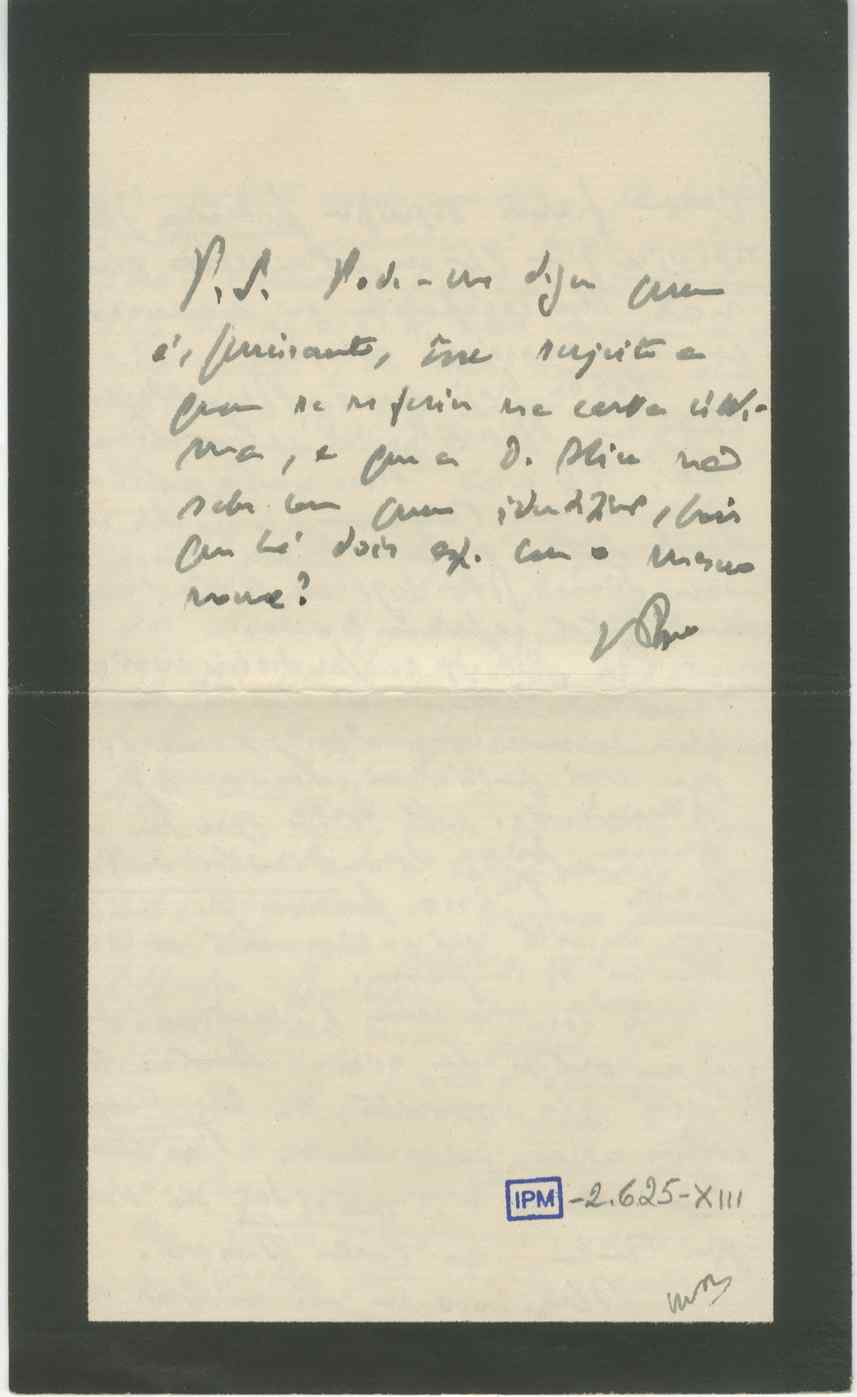 P. S. Pode-me dizer quem
é, precisamente, êsse sujeito a
quem se referiu na carta últi-
ma, e que a D. Alice não
sabe com quem identifique, pois
que há dois aqi. com o mesmo
nome?
IPM -2.625-XIII